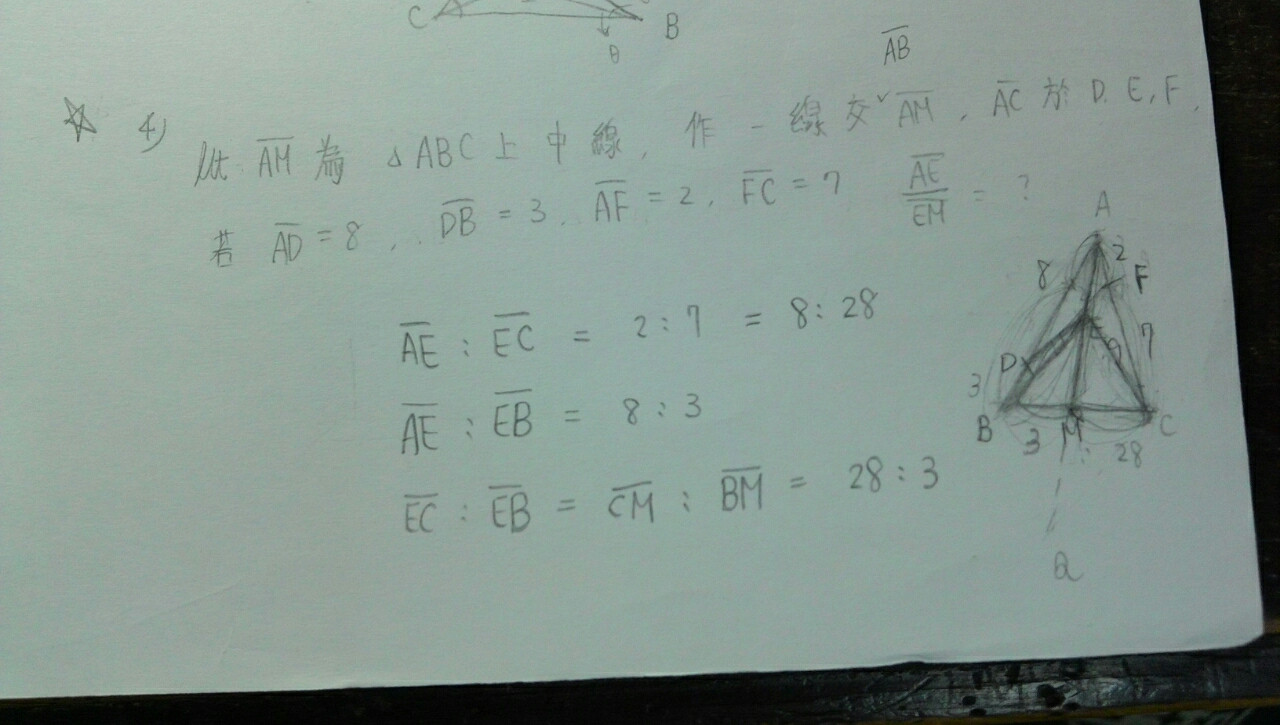 C
B
θ
AB
4) let AM 為 △ABC 上 中線, 作 一 線 交 AM, AC 於 D, E, F,
若 AD = 8, DB = 3, AF = 2, FC = 7 AE/EM = ?
AE : EC = 2 : 7 = 8 : 28
AE : EB = 8 : 3
EC : EB = CM : BM = 28 : 3
A
8 2
F
E
D 7
3
B M C
3 28
Q